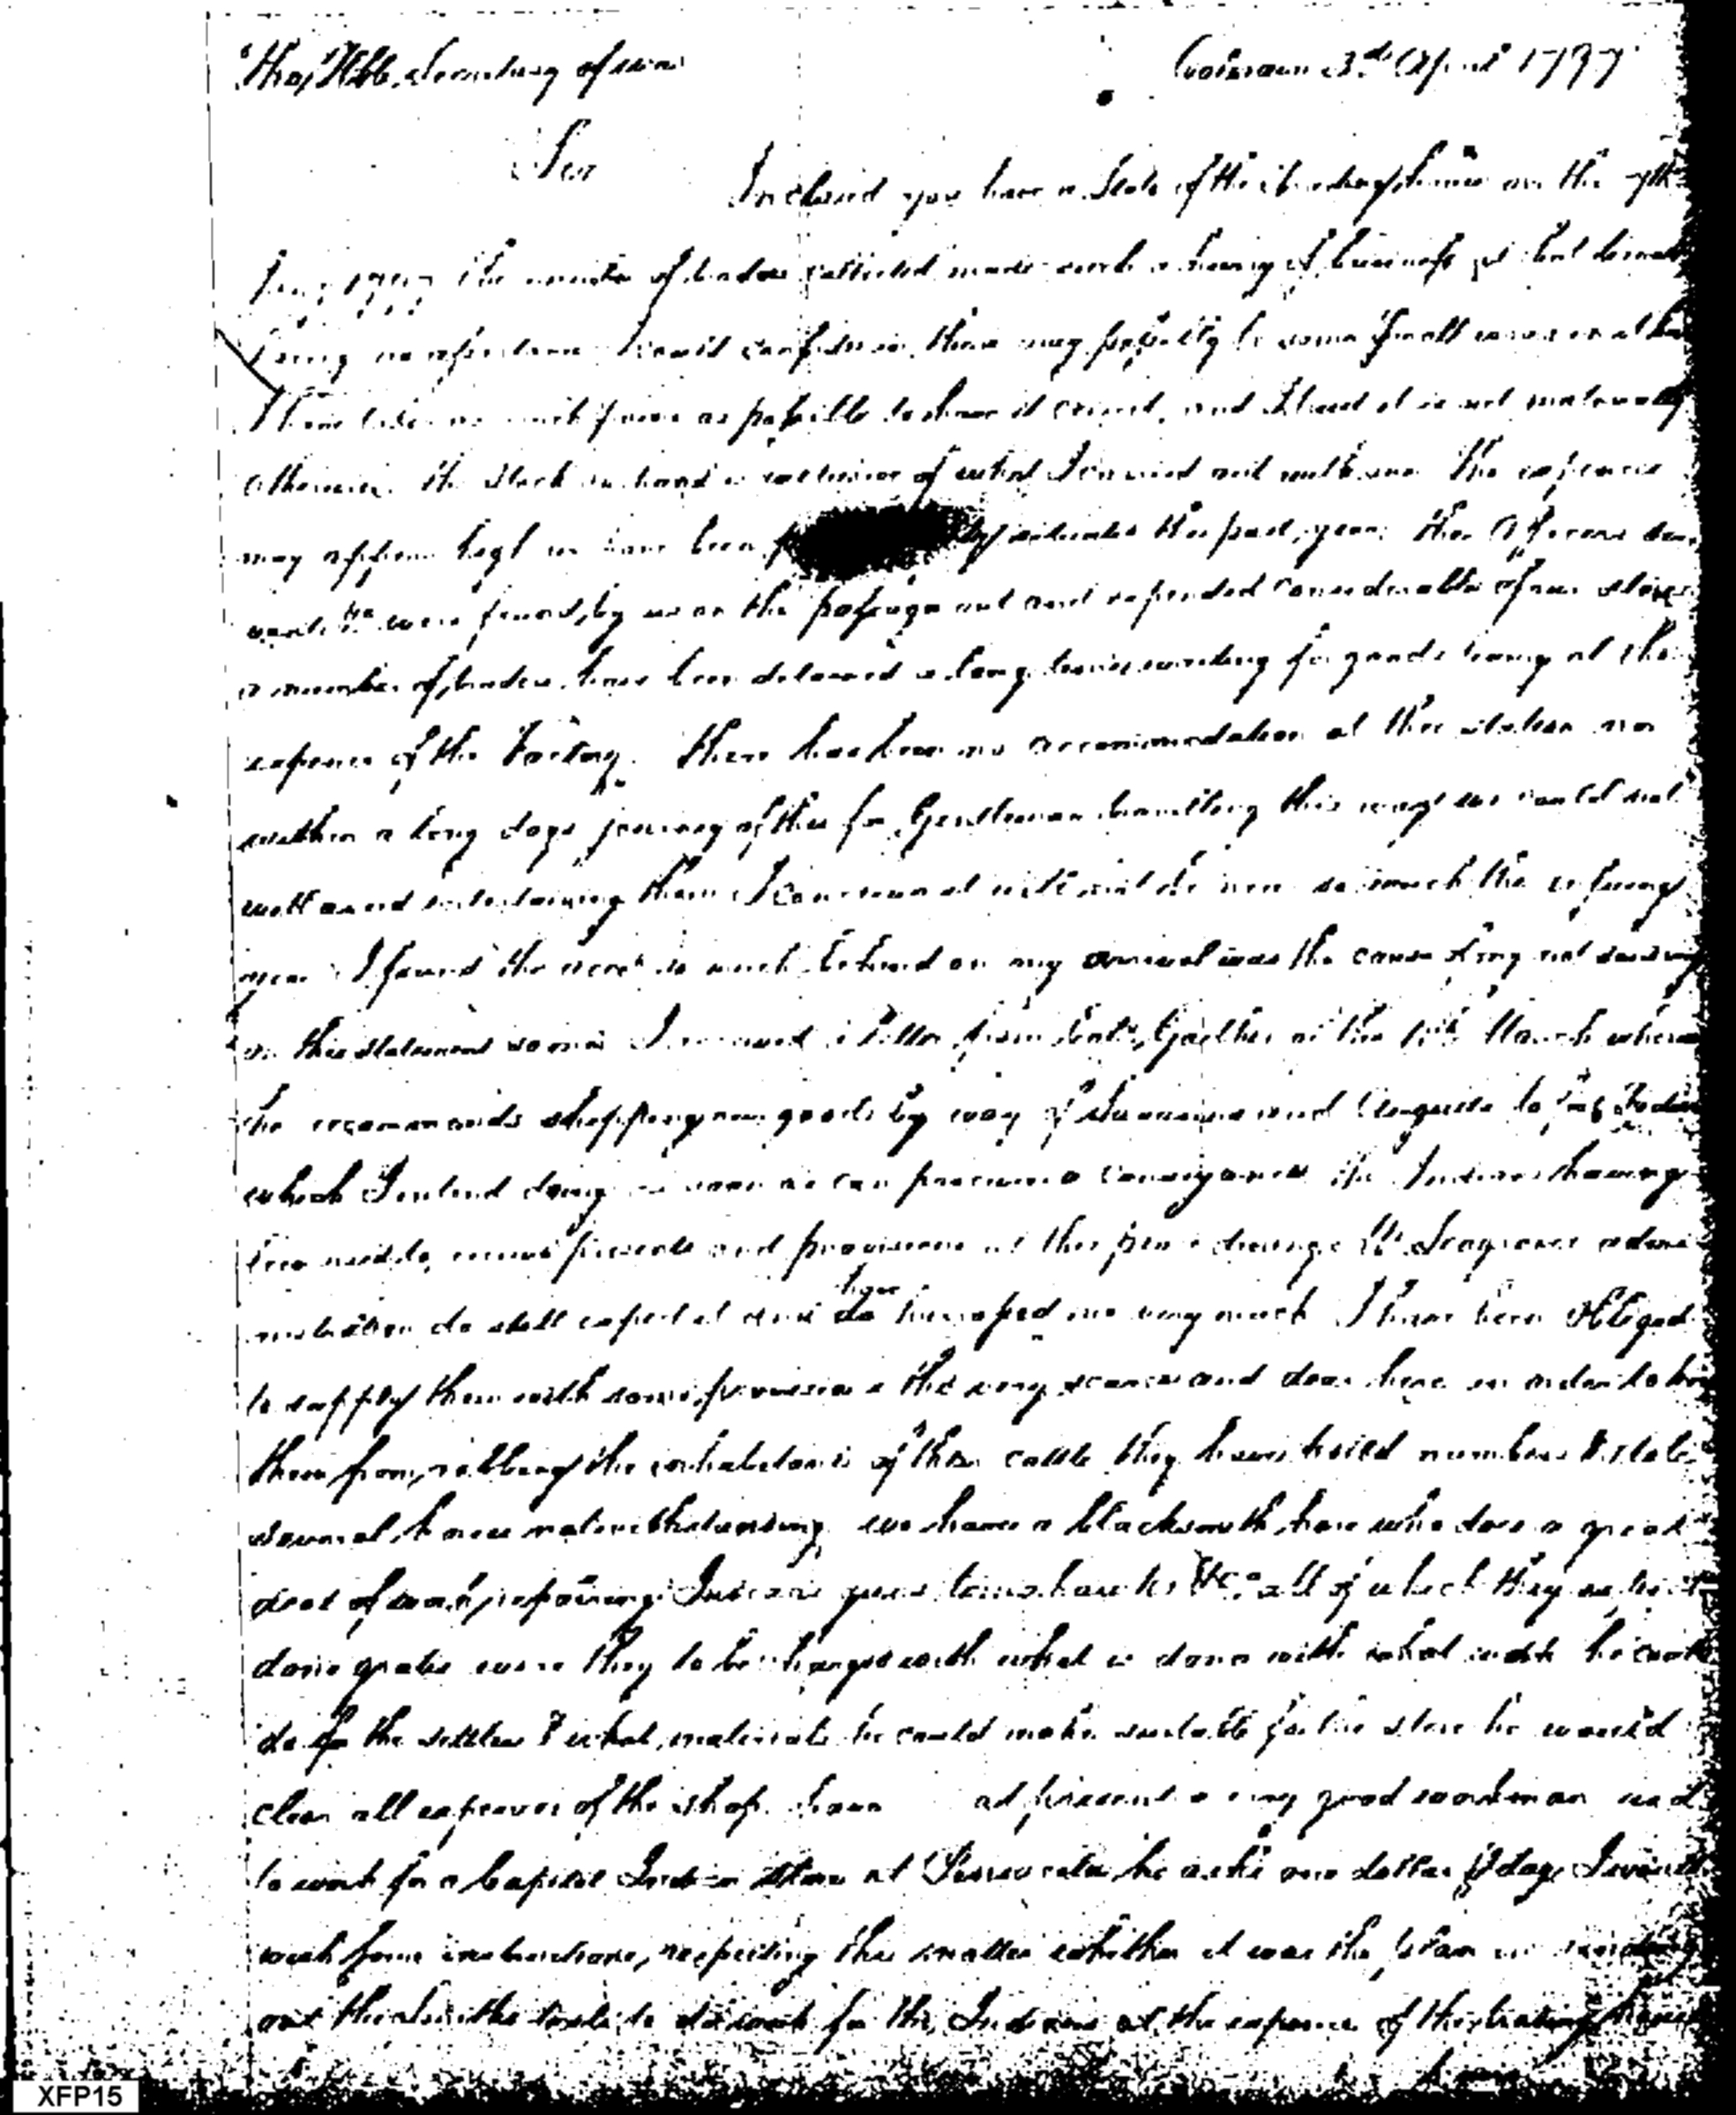 The Honble Secretary of war
Coleraine 3rd April 1797
Sir
Inclosed you have a State of the trading house on the 7th
Jany 1797 the number of traders collected made such a hurry of business at that
being no assistance caus'd confusion, there may possibly be some small errors
I have taken as much pains as possible to have it correct, and I trust it is not materially
otherwise. the Stock on hand is exclusive of what I carried out with me The expences
may appear high we have been situated this past year. the Officers
were found by us on the passage out and expended considerable of our stores
a number of traders have been detained a long time waiting for goods being at the
expence of the Factory. There has been no accommodation at this station nor
within a long days journey of this for Gentlemen travelling this way we could not
well avoid entertaining them I conceive it will not be near so much the ensuing
year I found the accts so much behind on my arrival was the cause of my not sending
on this statement sooner I received a letter from Coln. Gaither of the March where
he recommends shipping our goods by way of Savannah and Augusta to
which I intend doing as soon as can procure a conveyance the Indians having
been used to receive presents and provisions at this place during Mr Seagroves admi
nistration do still expect it and have harrassed me very much I have been Obliged
to supply them with some provisions tho very scarce and dear here in order to
them from robbing the inhabitants of their cattle they have kill'd numbers & stole
several horses notwithstanding we have a blacksmith here who does a great
deal of work, repairing Indians guns tomahawks &c. all of which they expect
done gratis were they to be charged with what is done with what work he could
do for the settlers & what materials he could make suitable for the store he would
clear all expences of the shop have at present a very good workman used
to work for a Indian store at Pensacola, he asks one dollar p day I would
wish some instructions, respecting this matter whether it was the plan in sending
out the Smiths tools to do work for the Indians at the expence of the trading house
XFP15